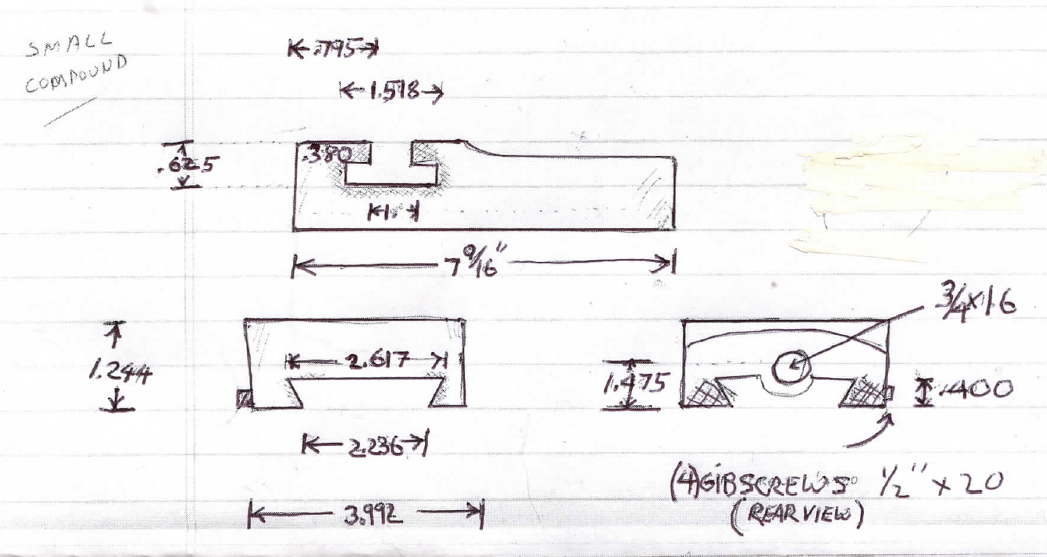 SMALL
COMPOUND
.795
1.518
.625
.380
1.
7 9/16"
3/4x16
1.244
2.617
1.475
.400
2.236
(4) GIBSCREWS 1/2" x 20
(REAR VIEW)
3.992